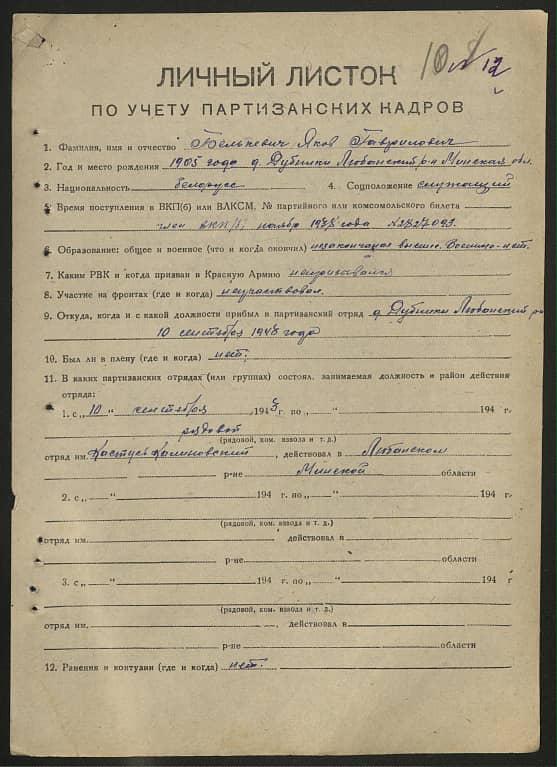 12
ЛИЧНЫЙ ЛИСТОК
ПО УЧЕТУ ПАРТИЗАНСКИХ КАДРОВ
1. Фамилия, имя и отчество Белькевич Яков Гаврилович
2. Год и место рождения 1905 года д. Дубники Любанский р-н Минская обл.
3. Национальность белорусс 4. Соцположение служащий
5. Время поступления в ВКП(б) или ВЛКСМ, № партийного или комсомольского билета
член ВКП/б/ ноябрь года №2827093.
6. Образование: общее и военное (что и когда окончил) незаконченое высшее. Военного-нет.
7. Каким РВК и когда призван в Красную Армию непризывался
8. Участие на фронтах (где и когда) неучаствовал.
9. Откуда, когда и с какой должности прибыл в партизанский отряд д Дубники Любанский р-н
10 сентября 1943 года
10. Был ли в плену (где и когда) нет.
11. В каких партизанских отрядах (или группах) состоял, занимаемая должность и район действия
отряда:
1. с „10“ сентября 1943 г. по „ “ 194 г.
рядовой
(рядовой, ком. взвода и т. д.)
отряд им. Кастусь Калиновский, действовал в Любанском
р-не Минской области
2. с „ “ 194 г. по „ “ 194 г.
(рядовой, ком. взвода и т. д.)
отряд им. действовал в
р-не области
3. с „ “ 194 г. по „ “ 194 г
(рядовой, ком. взвода и т. д.)
отряд им. , действовал в
р-не области
12. Ранения и контузии (где и когда) нет.